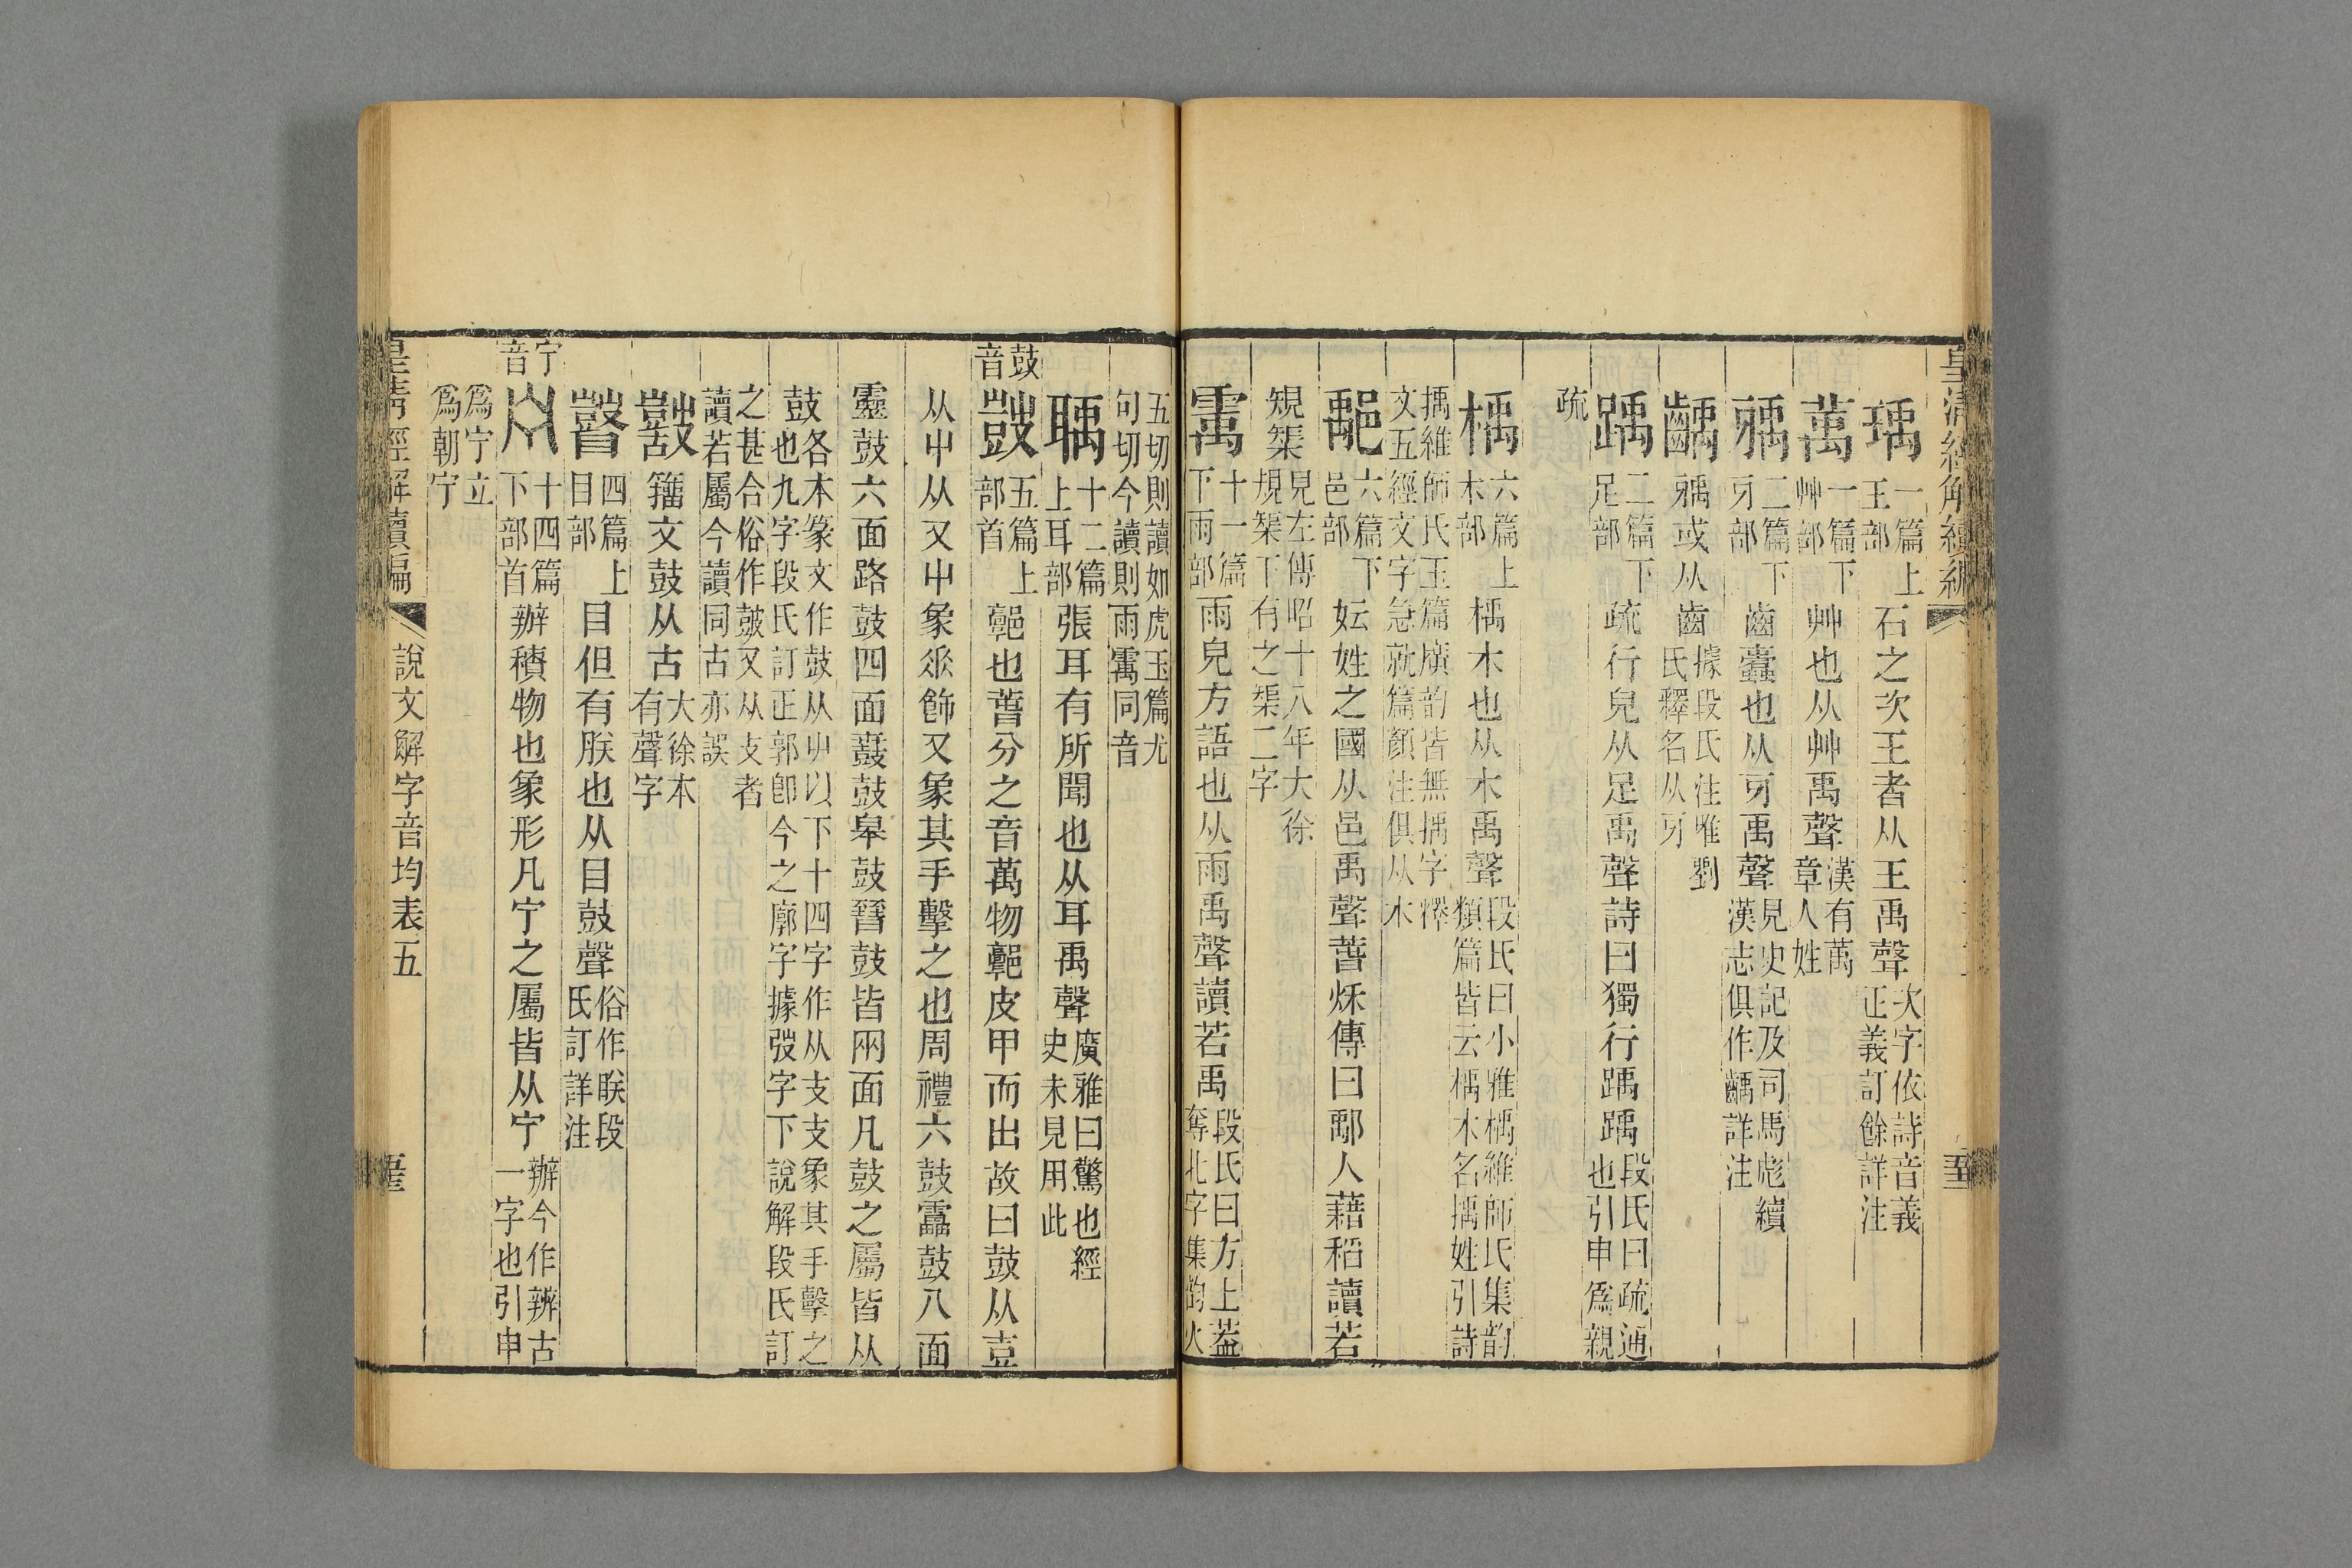 皇清經解續編
瑀一篇上王部石之次玉者从王禹聲次字依詩音義正義訂餘詳注
萭一篇下艸部艸也从艸禹聲漢有萭章人姓
㺄二篇下牙部齒蠹也从牙禹聲見史記及司馬彪續漢志俱作齲詳注
齲㺄或从齒據段氏注唯劉氏釋名从牙
踽二篇下足部疏行皃从足禹聲詩曰獨行踽踽段氏曰疏通也引申爲親
疏
楀六篇上木部楀木也从木禹聲段氏曰小雅楀維師氏集韵類篇皆云楀木名㩓姓引詩
㩓維師氏玉篇廣韵皆無㩓字釋文五經文字急就篇顏注俱从木
鄅六篇下邑部妘姓之國从邑禹聲春秌傳曰鄅人藉稻讀若
規榘見左傳昭十八年大徐規榘下有之榘二字
䨞十一篇下雨部雨皃方語也从雨禹聲讀若禹段氏曰方上葢奪北字集韵火
五切則讀如虎玉篇尤句切今讀則雨䨞同音
聥十二篇上耳部張耳有所聞也从耳禹聲廣雅曰驚也經史未見用此
鼓音
鼓五篇上部首郭也萅分之音萬物郭皮甲而出故曰鼓从壴
从屮从又屮象𠂹飾又象其手擊之也周禮六鼓靁鼓八面
靈鼓六面路鼓四面鼖鼓皋鼓晉鼓皆兩面凡鼓之屬皆从
鼓各本篆文作鼓从屮以下十四字作从支支象其手擊之也九字段氏訂正郭卽今之廓字據弢字下說解段氏訂
之甚合俗作皷又从支者讀若屬今讀同古亦誤
籒文鼓从古大徐本有聲字
瞽四篇上目部目但有眹也从目鼓聲俗作眹段氏訂詳注
宁音
宁十四篇下部首辦積物也象形凡宁之屬皆从宁辦今作辨古一字也引申
爲宁立爲朝宁
皇清經解續編
說文解字音均表五